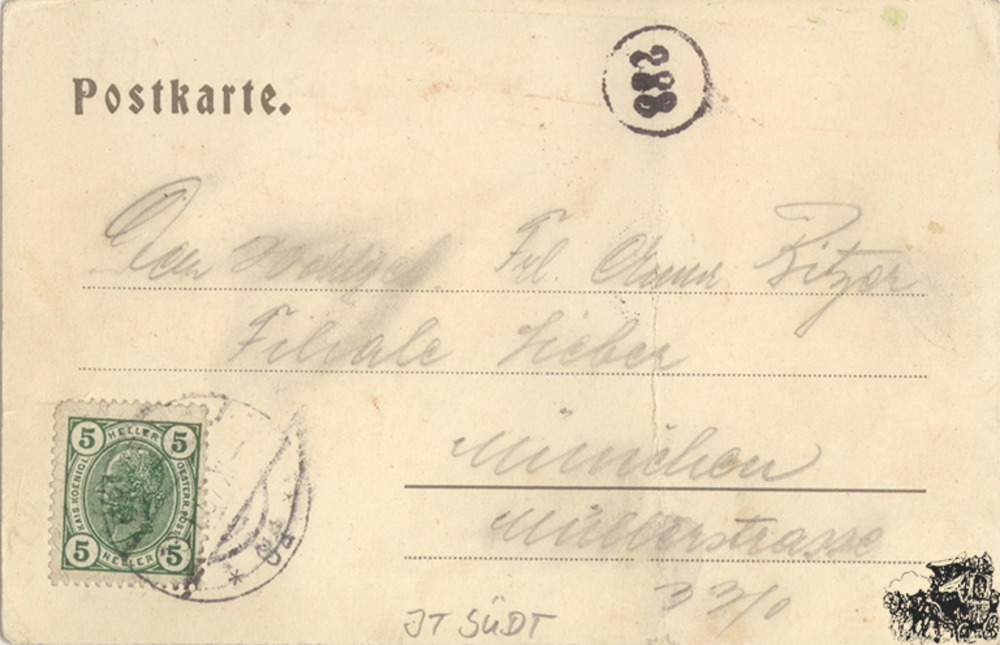 Postkarte.
288
Frl. Bitzer
Filiale Lieber
München
Müllerstrasse
33/0
5 HELLER 5
KAIS. KOENIGL. OESTERR. POST
5 HELLER 5
IT SÜDT